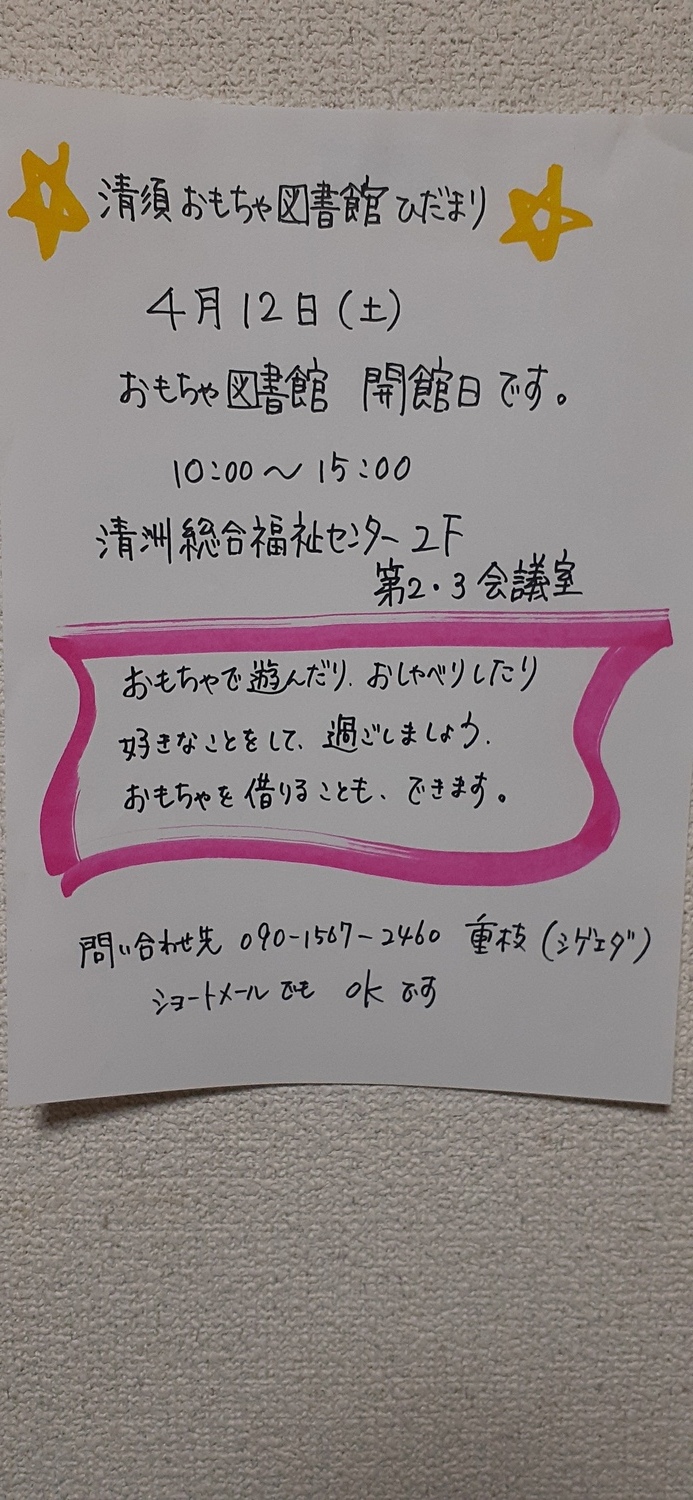 清須おもちゃ図書館ひだまり
4月12日(土)
おもちゃ図書館 開館日です。
10:00〜15:00
清洲総合福祉センター2F
第2・3会議室
おもちゃで遊んだり、おしゃべりしたり
好きなことをして、過ごしましょう。
おもちゃを借りることも、できます。
問い合わせ先 090-1567-2460 重枝(シゲエダ)
ショートメールでも OKです